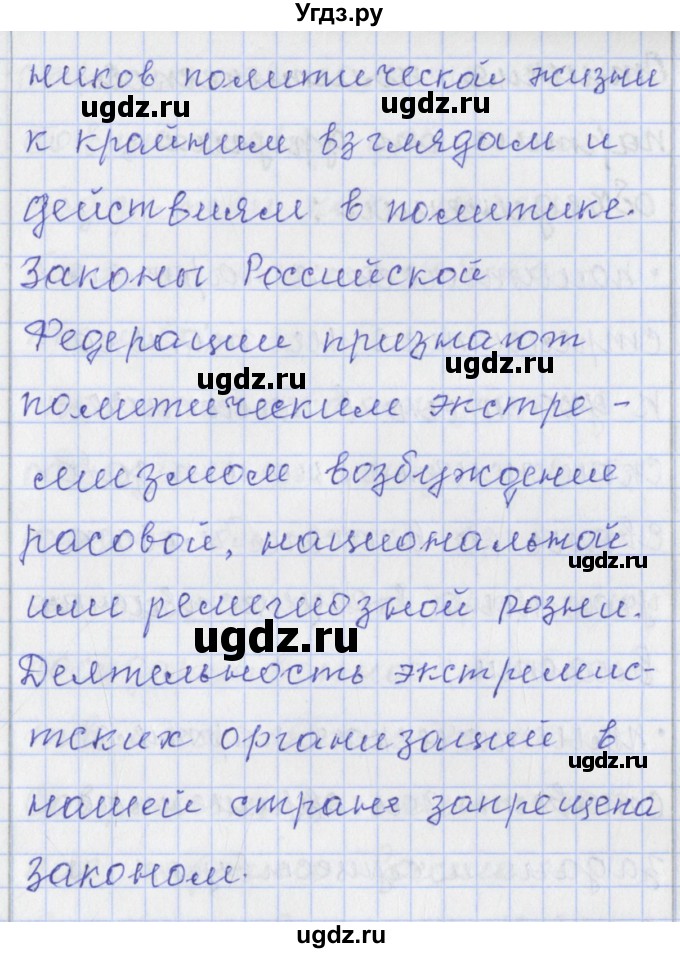 Угдз.ру
ников политической жизни
ugdz.ru ugdz.ru
к крайним взглядам и
действиям в политике.
Законы Российской
Федерации признают
ugdz.ru ugdz.ru
политическим экстре-
мизмом возбуждение
расовой, национальной
ugdz.ru
или религиозной розни.
ugdz.ru
Деятельность экстремис-
тских организаций в
ugdz.ru
нашей стране запрещена
законом.
ugdz.ru